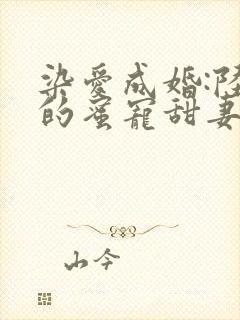 染爱成婚:陆
的蜜宠甜妻
山今